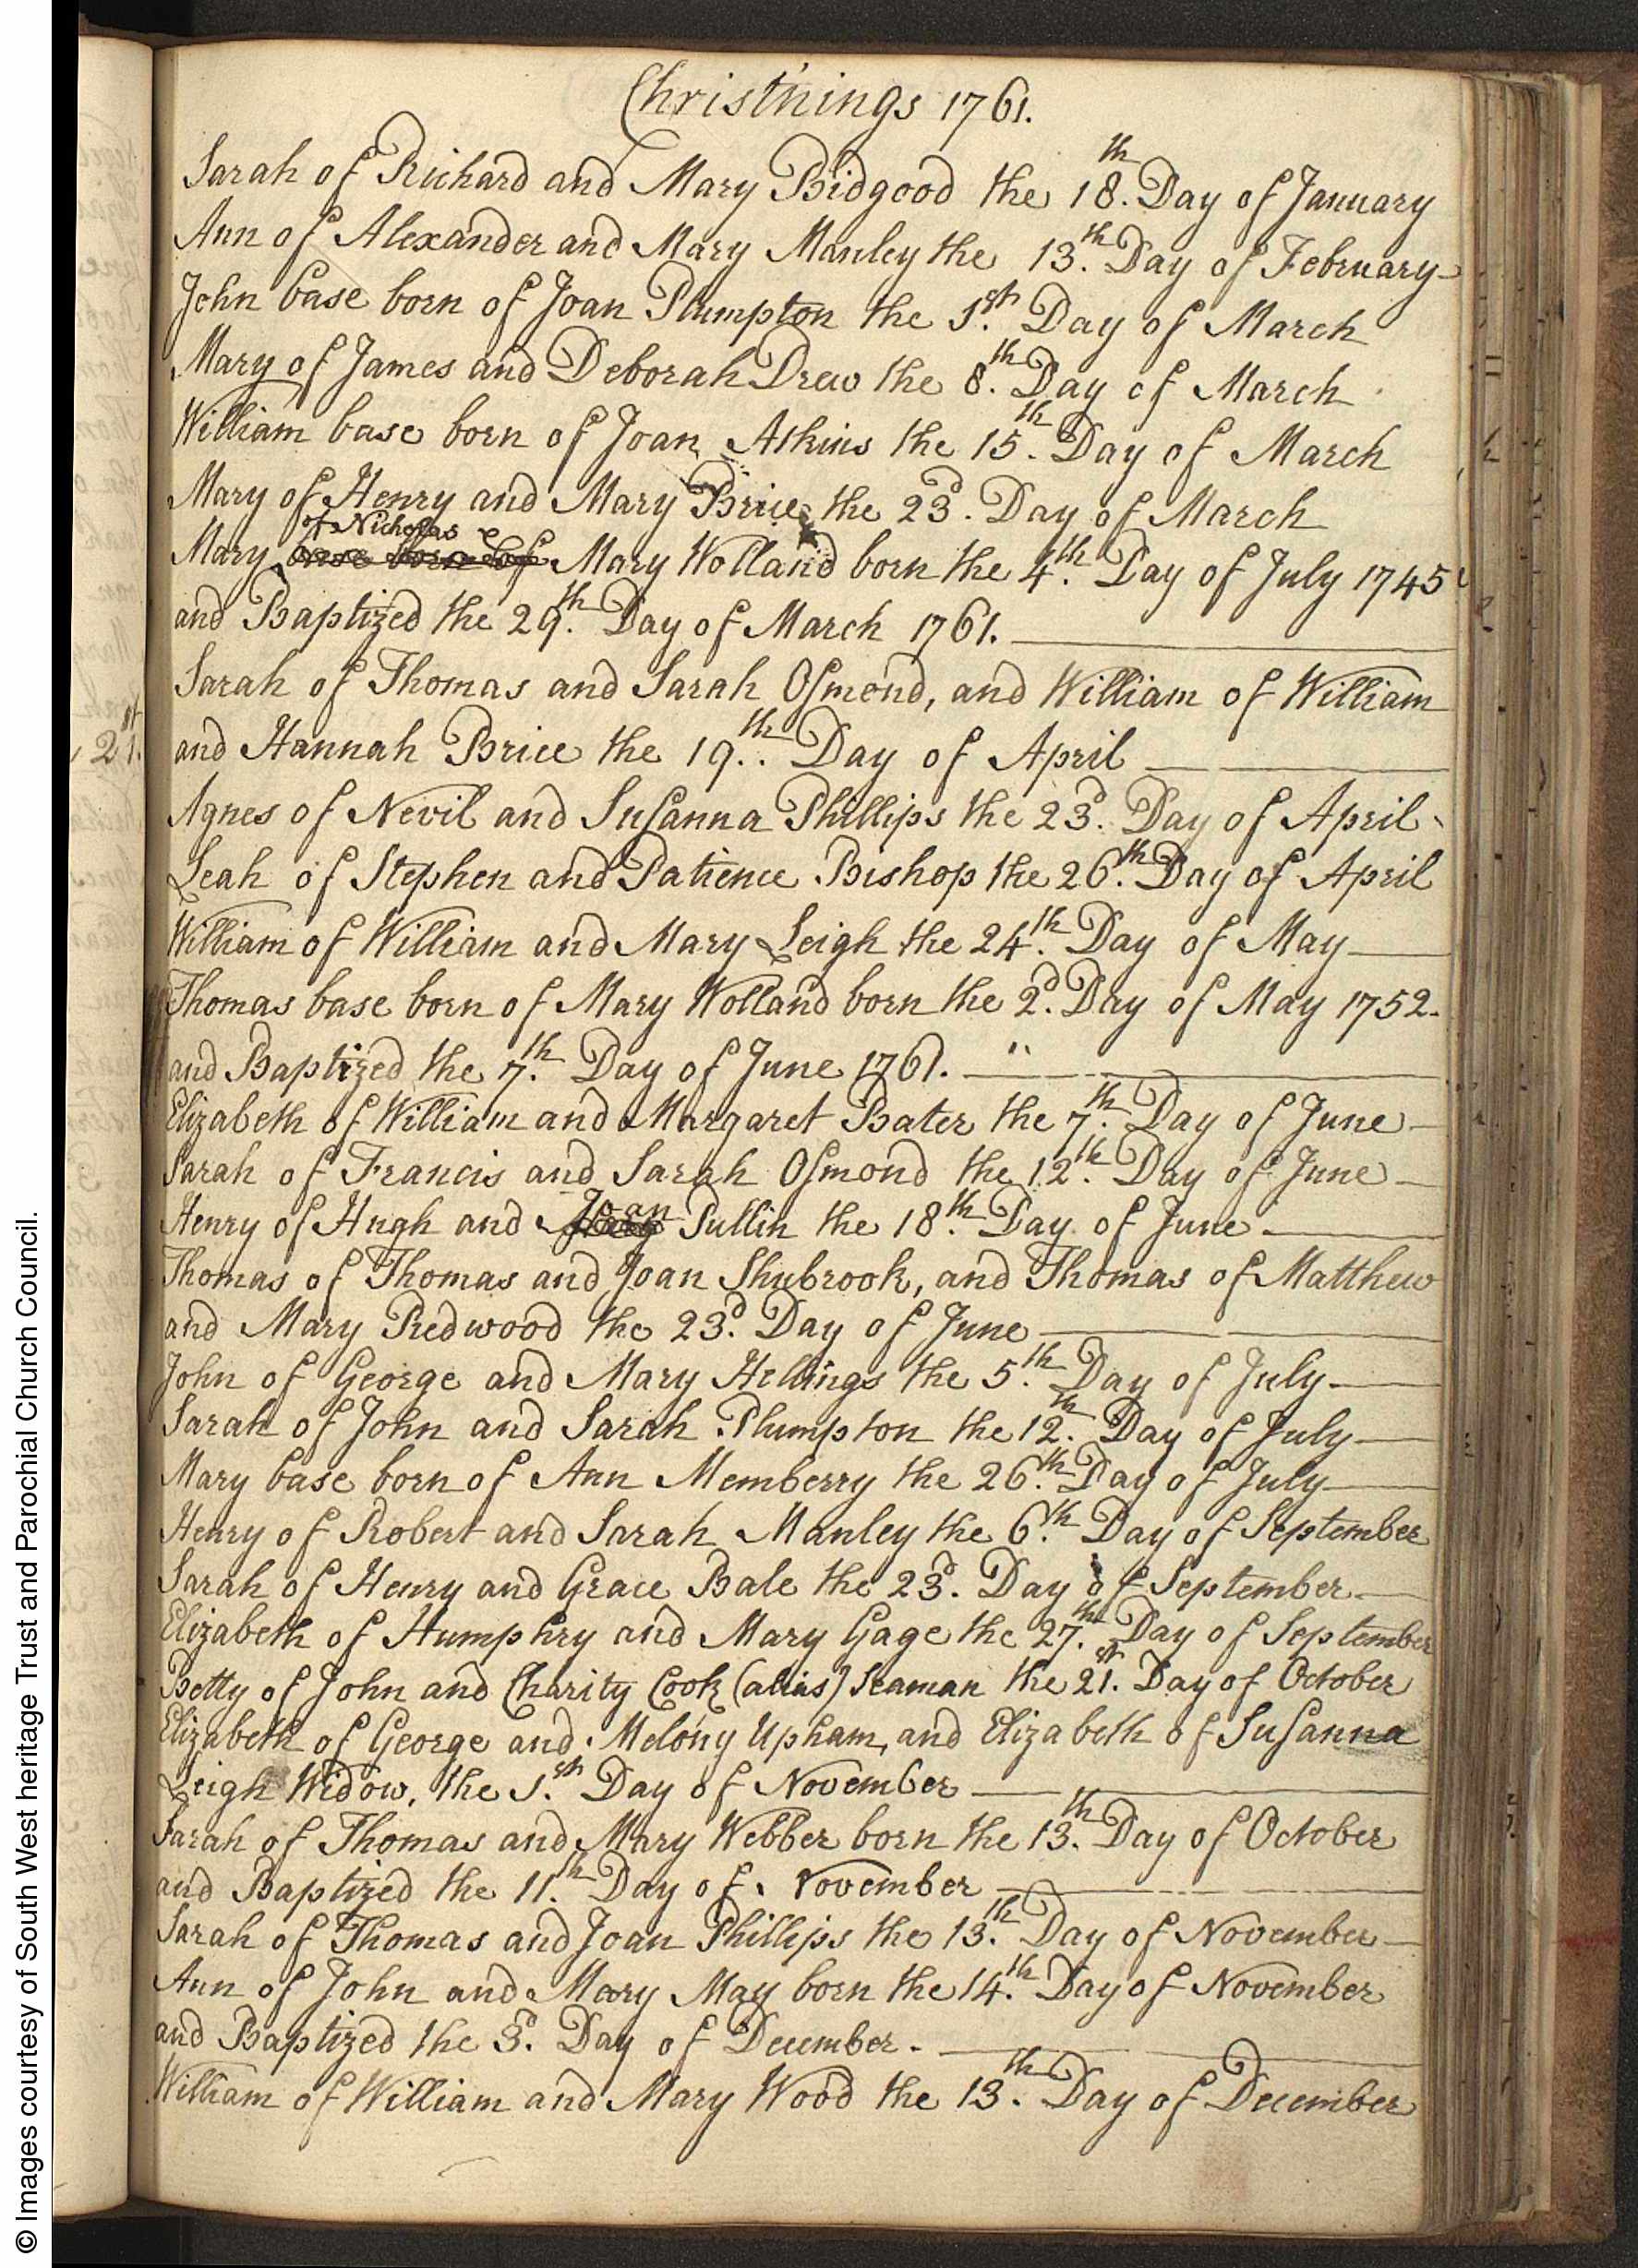 Christ'nings 1761.
Sarah of Richard and Mary Bidgood the 18.th Day of January
Ann of Alexander and Mary Manley the 13.th Day of February
John base born of Joan Plumpton the 1.st Day of March
Mary of James and Deborah Drew the 8.th Day of March
William base born of Joan Atkins the 15.th Day of March
Mary of Henry and Mary Brice the 23.d Day of March
of Nicholas &
Mary base born of Mary Wolland born the 4.th Day of July 1745
and Baptized the 29.th Day of March 1761.
Sarah of Thomas and Sarah Osmond, and William of William
and Hannah Brice the 19.th Day of April
Agnes of Nevil and Susanna Phillips the 23.d Day of April
Leah of Stephen and Patience Bishop the 26.th Day of April
William of William and Mary Leigh the 24.th Day of May
Thomas base born of Mary Wolland born the 2.d Day of May 1752.
and Baptized the 7.th Day of June 1761.
Elizabeth of William and Margaret Bater the 7.th Day of June
Sarah of Francis and Sarah Osmond the 12.th Day of June
Henry of Hugh and Joan Pullin the 18.th Day of June
Thomas of Thomas and Joan Shubrook, and Thomas of Matthew
and Mary Redwood the 23.d Day of June
John of George and Mary Hellings the 5.th Day of July
Sarah of John and Sarah Plumpton the 12.th Day of July
Mary base born of Ann Memberry the 26.th Day of July
Henry of Robert and Sarah Manley the 6.th Day of September
Sarah of Henry and Grace Bale the 23.d Day of September
Elizabeth of Humphry and Mary Gage the 27.th Day of September
Betty of John and Charity Cook (alias) Seaman the 21.st Day of October
Elizabeth of George and Melony Upham, and Elizabeth of Susanna
Leigh Widow, the 1.st Day of November
Sarah of Thomas and Mary Webber born the 13.th Day of October
and Baptized the 11.th Day of November
Sarah of Thomas and Joan Phillips the 13.th Day of November
Ann of John and Mary May born the 14.th Day of November
and Baptized the 3.d Day of December.
William of William and Mary Wood the 13.th Day of December
© Images courtesy of South West heritage Trust and Parochial Church Council.